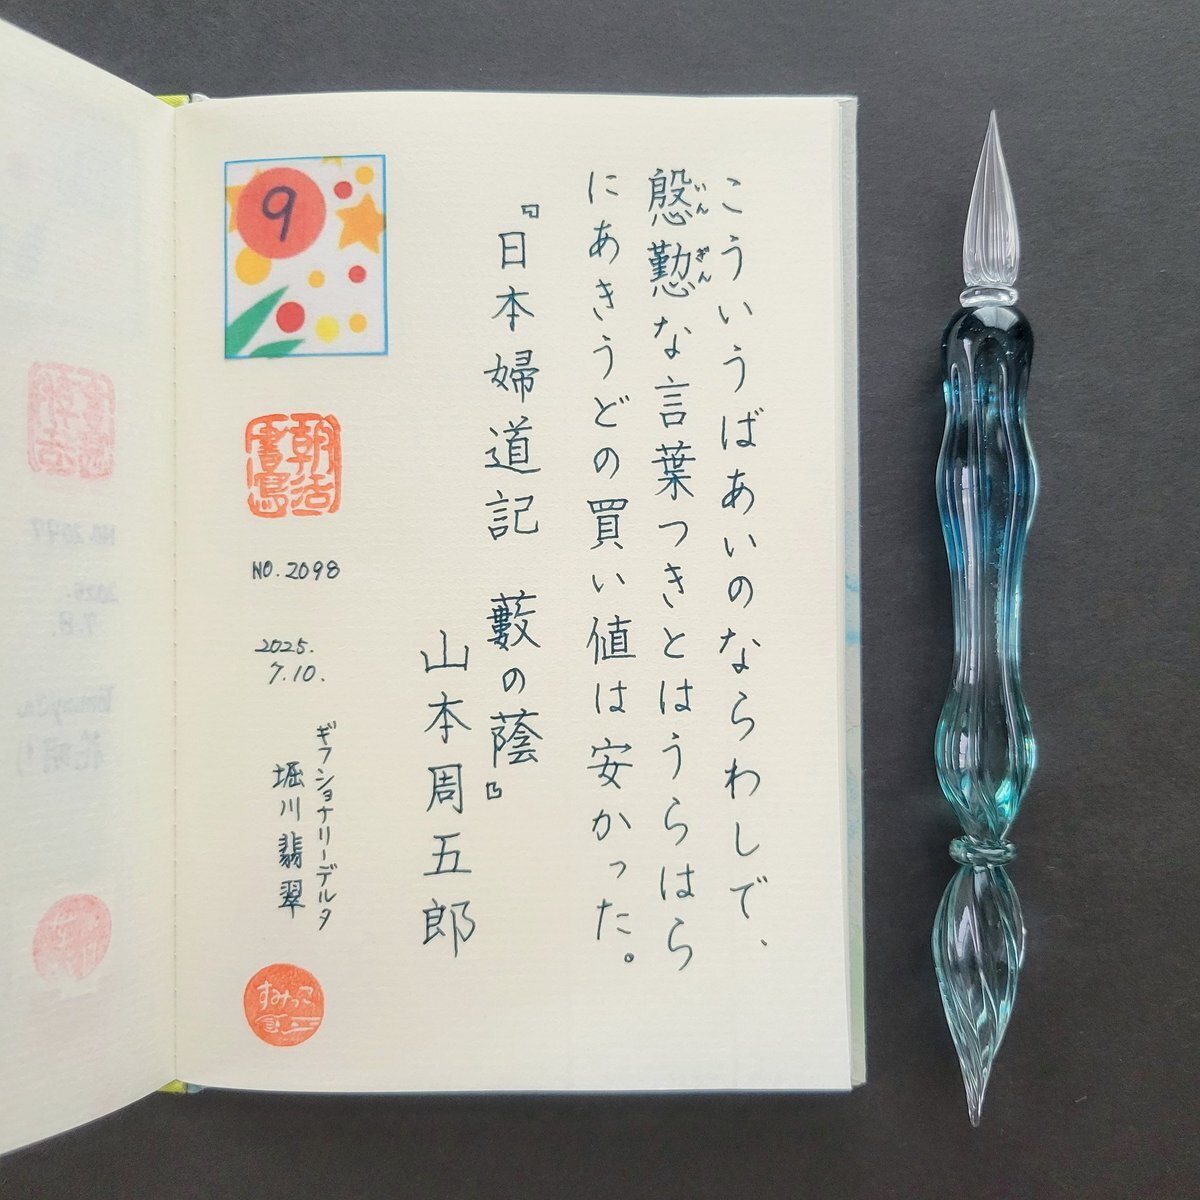 こういうばあいのならわしで、
慇懃な言葉つきとはうらはら
いん
ぎん
にあきうどの買い値は安かった。
『日本婦道記 藪の蔭』
山本周五郎
9
朝活
書写
NO.2098
2025.
7.10.
ギフショナリーデルタ
堀川翡翠
すみっこ